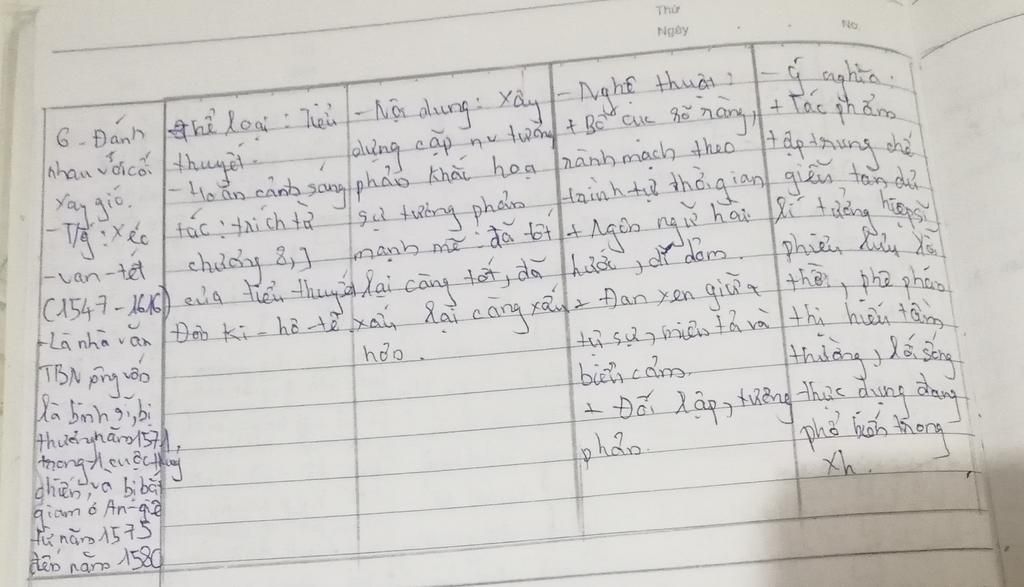 Thứ
Ngày
No.
6. Đánh
nhau với cối
xay gió.
- T/g: Xéc
- van - tét
(1547 - 1616)
- Là nhà văn
TBN ông vốn
là binh sĩ, bị
thương năm 1571,
trong 1 cuộc thủy
chiến, và bị bắt
giam ở An-giê
từ năm 1575
đến năm 1580
- Thể loại: Tiểu
thuyết.
- Hoàn cảnh sáng
tác: trích từ
chương 8,
của tiểu thuyết
Đôn Ki - hô - tê
- Nội dung: Xây
dựng cặp nv tương
phản khắc hoạ
sự tương phản
mạnh mẽ: đã tốt
lại càng tốt, đã
xấu lại càng xấu
hơn.
- Nghệ thuật:
+ Bố cục rõ ràng,
rành mạch theo
trình tự thời gian
+ Ngôn ngữ hài
hước, dí dỏm.
+ Đan xen giữa
tự sự, miêu tả và
biểu cảm.
+ Đối lập, tương
phản.
- Ý nghĩa:
+ Tác phẩm
tập trung chế
giễu tàn dư
lí tưởng hiệp sĩ
phiêu lưu lỗi
thời, phê phán
thị hiếu tầm
thường, lối sống
thực dụng đang
phổ biến trong
xh.